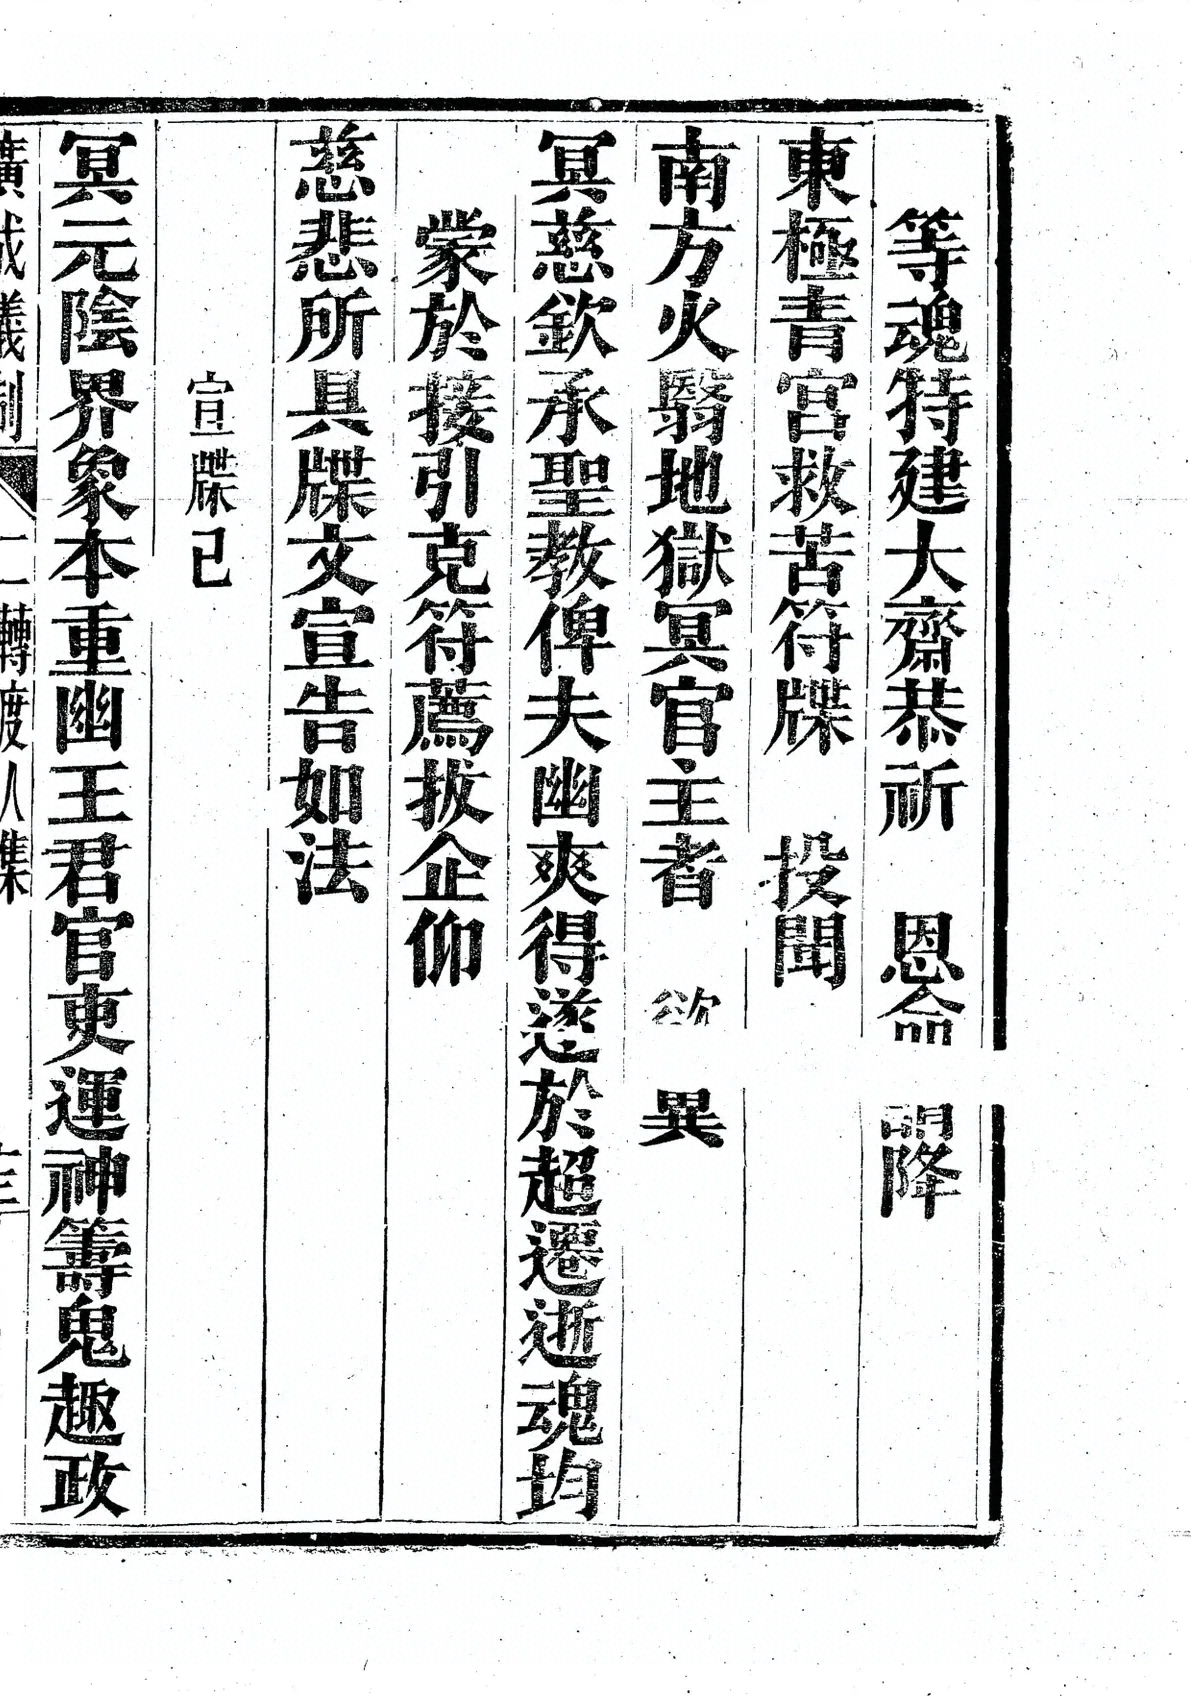 等魂特建大齋恭祈　恩命　頒降
東極青宮救苦符牒　投聞
南方火翳地獄冥官主者　欲　異
冥慈欽承聖教俾夫幽爽得遂於超遷逝魂均
蒙於接引克符薦拔企仰
慈悲所具牒文宣告如法
宣牒已
冥元陰界象本重幽王君官吏運神籌鬼趣政
廣成儀制　二轉度人集